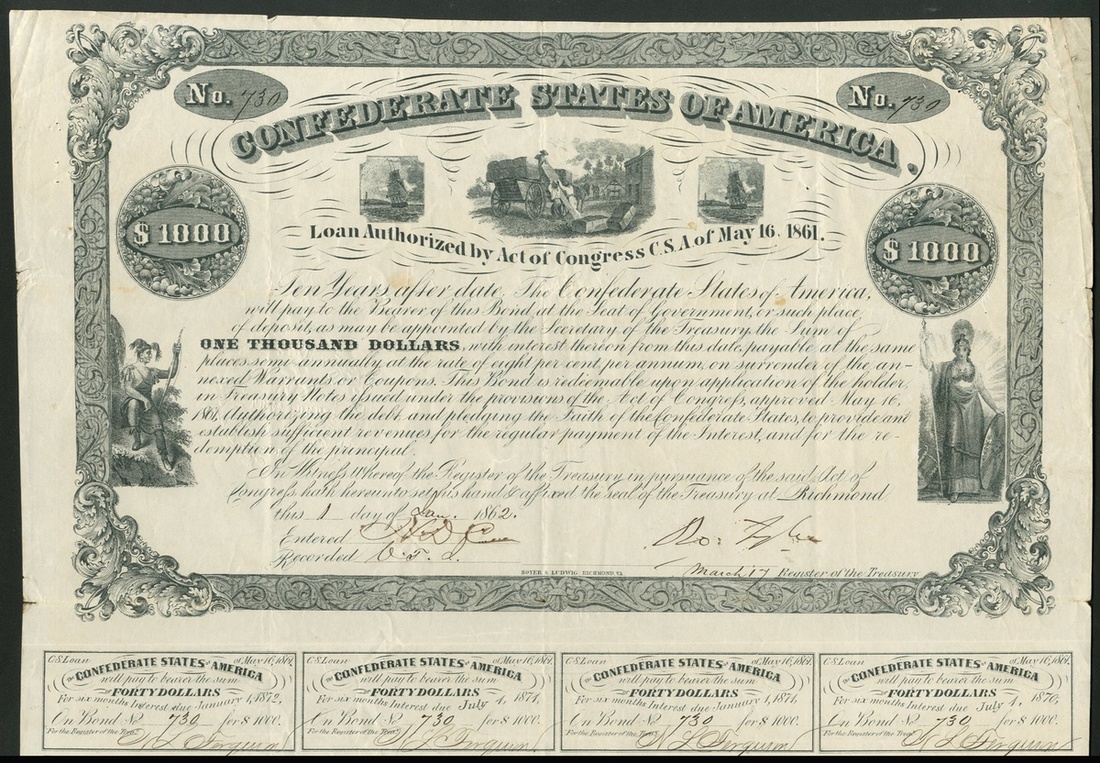 No. 730
No. 730
CONFEDERATE STATES OF AMERICA.
$ 1000
$ 1000
Loan Authorized by Act of Congress C.S.A. of May 16, 1861.
Ten Years after date, The Confederate States of America,
will pay to the Bearer of this Bond, at the Seat of Government, or such place
of deposit, as may be appointed by the Secretary of the Treasury, the Sum of
ONE THOUSAND DOLLARS, with interest thereon from this date, payable at the same
places semi-annually at the rate of eight per cent per annum, on surrender of the an-
nexed Warrants or Coupons. This Bond is redeemable upon application of the holder,
in Treasury Notes issued under the provisions of the Act of Congress, approved May 16,
1861, Authorizing the debt and pledging the Faith of the Confederate States, to provide and
establish sufficient revenues for the regular payment of the Interest, and for the re-
demption of the principal.
In Witness Whereof, the Register of the Treasury in pursuance of the said Act of
Congress hath hereunto set his hand & affixed the seal of the Treasury at Richmond
this 1 day of Jan. 1862.
Entered
Recorded
BOYER & LUDWIG RICHMOND, VA
March 17 Register of the Treasury
C.S. Loan of May 16, 1861.
CONFEDERATE STATES OF AMERICA
will pay to bearer the sum
of FORTY DOLLARS
For six months Interest due January 1, 1872,
On Bond No 730 for $ 1000.
For the Register of the Treasy.
C.S. Loan of May 16, 1861.
The CONFEDERATE STATES OF AMERICA
will pay to bearer the sum
of FORTY DOLLARS
For six months Interest due July 1, 1871,
On Bond No 730 for $ 1000.
For the Register of the Treasy. L Ferguson
C.S. Loan of May 16, 1861.
The CONFEDERATE STATES OF AMERICA
will pay to bearer the sum
of FORTY DOLLARS
For six months Interest due January 1, 1871,
On Bond No 730 for $ 1000.
For the Register of the Treasy. L Ferguson
C.S. Loan of May 16, 1861.
The CONFEDERATE STATES OF AMERICA
will pay to bearer the sum
of FORTY DOLLARS
For six months Interest due July 1, 1870,
On Bond No 730 for $ 1000.
For the Register of the Treasy. L Ferguson